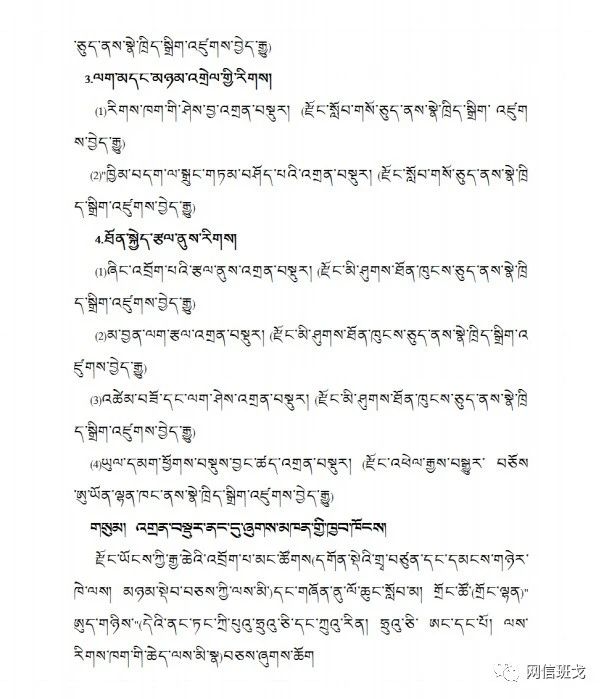 ཅུད་ནས་སྣེ་ཁྲིད་སྒྲིག་འཛུགས་བྱེད་རྒྱུ)
3.ལག་མདང་མཉམ་འགྲེལ་གྱི་རིགས།
(1)རིགས་ཁག་གི་ཤེས་བྱ་འགྲན་བསྡུར། (རྫོང་སློབ་གསོ་ཅུད་ནས་སྣེ་ཁྲིད་སྒྲིག་ འཛུག
ས་བྱེད་རྒྱུ)
(2)"ཁྱིམ་བདག་ལ་སྒྲུང་གཏམ་བཤོད་པའི་འགྲན་བསྡུར། (རྫོང་སློབ་གསོ་ཅུད་ནས་སྣེ་ཁྲི
ད་སྒྲིག་འཛུགས་བྱེད་རྒྱུ)
4.ཐོན་སྐྱེད་རྩལ་ནུས་རིགས།
(1)ཞིང་འབྲོག་པའི་རྩལ་ནུས་འགྲན་བསྡུར། (རྫོང་མི་ཤུགས་ཐོན་ཁུངས་ཅུད་ནས་སྣེ་ཁྲི
ད་སྒྲིག་འཛུགས་བྱེད་རྒྱུ)
(2)མ་བྱན་ལག་རྩལ་འགྲན་བསྡུར། (རྫོང་མི་ཤུགས་ཐོན་ཁུངས་ཅུད་ནས་སྣེ་ཁྲིད་སྒྲིག་འ
ཛུགས་བྱེད་རྒྱུ)
(3)འཚེམ་བཟོ་དང་ལག་ཤེས་འགྲན་བསྡུར། (རྫོང་མི་ཤུགས་ཐོན་ཁུངས་ཅུད་ནས་སྣེ་ཁྲི
ད་སྒྲིག་འཛུགས་བྱེད་རྒྱུ)
(4)ཡུལ་དམག་ཕྱོགས་བསྡུས་བྱང་ཚད་འགྲན་བསྡུར། (རྫོང་འཕེལ་རྒྱས་བསྒྱུར་ བཅོས
ཨུ་ཡོན་ལྷན་ཁང་ནས་སྣེ་ཁྲིད་སྒྲིག་འཛུགས་བྱེད་རྒྱུ)
གསུམ། འགྲན་བསྡུར་ནང་དུ་ཞུགས་མཁན་གྱི་ཁྱབ་ཁོངས།
རྫོང་ཡོངས་ཀྱི་རྒྱ་ཆེའི་འབྲོག་པ་མང་ཚོགས(དགོན་སྡེའི་གྲྭ་བཙུན་དང་དམངས་གཉེར་
ཁེ་ལས། མཉམ་སྡེབ་བཅས་ཀྱི་ལས་མི་)དང་གཞོན་ནུ་ལོ་ཆུང་སློབ་མ། གྲོང་ཚོ་(གྲོང་ལྷན)"
ཨུད་གཉིས་"(དེའི་ནང་ཏང་ཀྲི་པུའུ་ཧྲུའུ་ཅི་དང་ཀྲུའུ་རིན། ཧྲུའུ་ཅི་ ཨང་དང་པོ། ལས་
རིགས་ཁག་གི་ཆེད་ལས་མི་སྣ)བཅས་ཞུགས་ཆོག
网信班戈